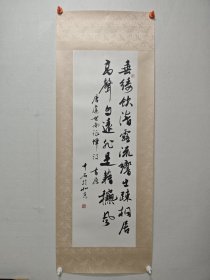 垂緌飲清露流響出疎桐居
高聲自遠非是藉秋風
唐虞世南詠蟬詩